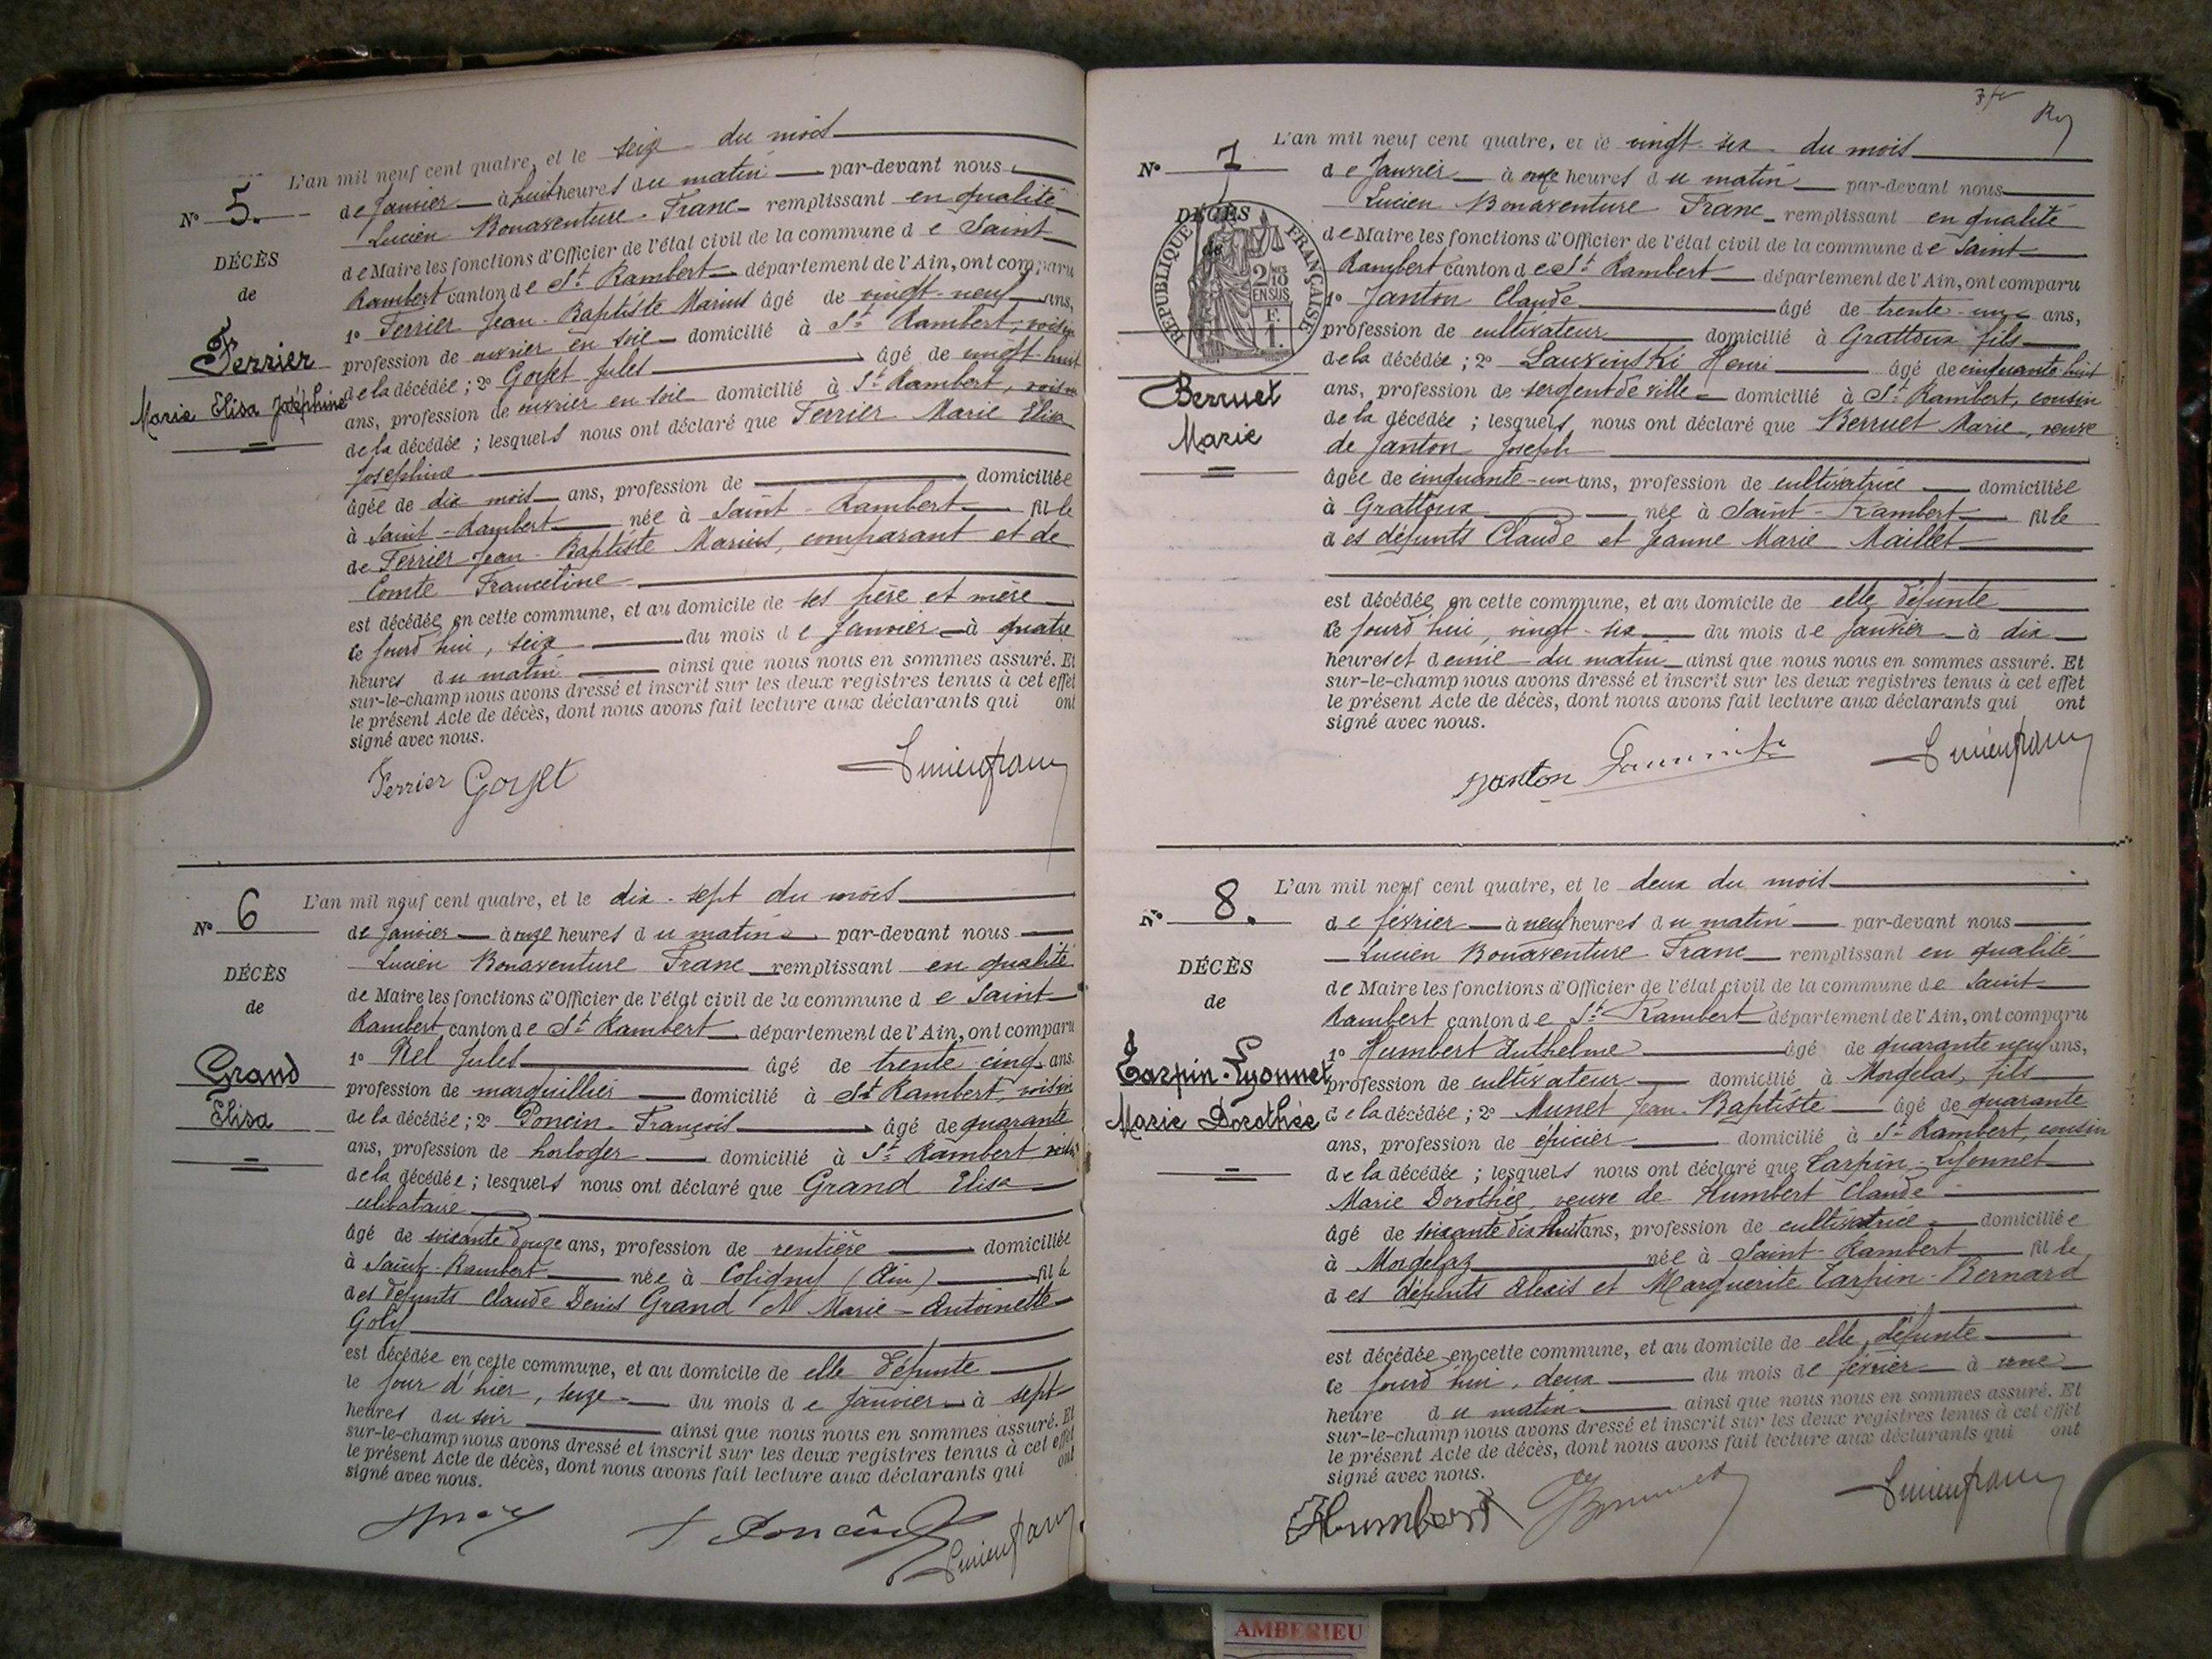 L'an mil neuf cent quatre, et le seize du mois
No 5. de Janvier à huit heures du matin par-devant nous
Lucien Bonaventure Franc remplissant en qualité
DÉCÈS
de Maire les fonctions d'Officier de l'état civil de la commune de Saint
de
Rambert canton de St Rambert département de l'Ain, ont comparu
1o Ferrier Jean-Baptiste Marius âgé de vingt-neuf ans,
Ferrier
profession de ouvrier en soie domicilié à St Rambert, voisin
Marie Elisa Joséphine
de la décédée; 2o Goyet Jules âgé de vingt-huit
ans, profession de ouvrier en soie domicilié à St Rambert, voisin
de la décédée; lesquels nous ont déclaré que Ferrier Marie Elisa
Joséphine
âgée de dix mois ans, profession de domiciliée
à Saint-Rambert née à Saint-Rambert fille
de Ferrier Jean-Baptiste Marius, comparant et de
Comte Franceline
est décédée en cette commune, et au domicile de ses père et mère
ce jourd'hui, seize du mois de Janvier à quatre
heures du matin ainsi que nous nous en sommes assuré. Et
sur-le-champ nous avons dressé et inscrit sur les deux registres tenus à cet effet
le présent Acte de décès, dont nous avons fait lecture aux déclarants qui ont
signé avec nous.
Ferrier Goyet Lucien franc
L'an mil neuf cent quatre, et le dix-sept du mois
No 6 de Janvier à onze heures du matin par-devant nous
Lucien Bonaventure Franc remplissant en qualité
DÉCÈS
de Maire les fonctions d'Officier de l'état civil de la commune de Saint
de
Rambert canton de St Rambert département de l'Ain, ont comparu
1o Jules âgé de trente-cinq ans
Grand
profession de marguillier domicilié à St Rambert, voisin
Elisa
de la décédée; 2o Poncin François âgé de quarante
ans, profession de horloger domicilié à St Rambert, voisin
de la décédée; lesquels nous ont déclaré que Grand Elisa
célibataire
âgé de soixante douze ans, profession de rentière domiciliée
à Saint-Rambert née à Coligny (Ain) fille
des défunts Claude Denis Grand et Marie-Antoinette
Goly
est décédée en cette commune, et au domicile de elle défunte
le jour d'hier, seize du mois de Janvier à sept
heures du soir ainsi que nous nous en sommes assuré. Et
sur-le-champ nous avons dressé et inscrit sur les deux registres tenus à cet effet
le présent Acte de décès, dont nous avons fait lecture aux déclarants qui ont
signé avec nous.
Poncin Lucien franc
L'an mil neuf cent quatre, et le vingt-six du mois
No 7 de Janvier à onze heures du matin par-devant nous
Lucien Bonaventure Franc remplissant en qualité
DÉCÈS
de
RÉPUBLIQUE FRANÇAISE
2/10 EN SUS
F. 1.
de Maire les fonctions d'Officier de l'état civil de la commune de Saint
Rambert canton de St Rambert département de l'Ain, ont comparu
1o Janton Claude âgé de trente-un ans,
profession de cultivateur domicilié à Grattoux fils
de la décédée; 2o Lauzinski Henri âgé de cinquante huit
Berruet
ans, profession de sergent de ville domicilié à St Rambert, cousin
Marie
de la décédée; lesquels nous ont déclaré que Berruet Marie, veuve
de Janton Joseph
âgée de cinquante-un ans, profession de cultivatrice domiciliée
à Grattoux née à Saint-Rambert fille
des défunts Claude et Jeanne Marie Maillet
est décédée en cette commune, et au domicile de elle défunte
ce jourd'hui, vingt-six du mois de Janvier à dix
heures et demie du matin ainsi que nous nous en sommes assuré. Et
sur-le-champ nous avons dressé et inscrit sur les deux registres tenus à cet effet
le présent Acte de décès, dont nous avons fait lecture aux déclarants qui ont
signé avec nous.
Janton Lucien franc
L'an mil neuf cent quatre, et le deux du mois
No 8. de février à neuf heures du matin par-devant nous
Lucien Bonaventure Franc remplissant en qualité
DÉCÈS
de Maire les fonctions d'Officier de l'état civil de la commune de Saint
de
Rambert canton de St Rambert département de l'Ain, ont comparu
1o Humbert Anthelme âgé de quarante neuf ans,
Tarpin-Lyonnet
profession de cultivateur domicilié à Morgelas, fils
Marie Dorothée
de la décédée; 2o Munet Jean-Baptiste âgé de quarante
ans, profession de épicier domicilié à St Rambert, cousin
de la décédée; lesquels nous ont déclaré que Tarpin-Lyonnet
Marie Dorothée, veuve de Humbert Claude
âgé de soixante dix huit ans, profession de cultivatrice domiciliée
à Morgelas née à Saint-Rambert fille
des défunts Alexis et Marguerite Tarpin-Bernard
est décédée en cette commune, et au domicile de elle défunte
ce jourd'hui, deux du mois de février à une
heure du matin ainsi que nous nous en sommes assuré. Et
sur-le-champ nous avons dressé et inscrit sur les deux registres tenus à cet effet
le présent Acte de décès, dont nous avons fait lecture aux déclarants qui ont
signé avec nous.
Humbert Lucien franc
AMBERIEU